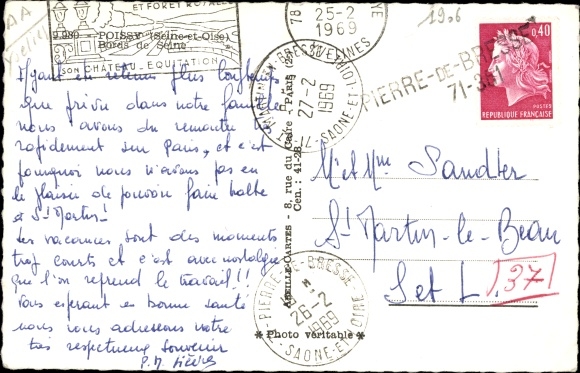 AA
ET FORET ROYALE
SON CHATEAU _ EQUITATION
9.989 - POISSY (Seine-et-Oise)
Bords de Seine
78
25-2
1969
YVELINES
1906
0,40
POSTES
REPUBLIQUE FRANÇAISE
PIERRE-DE-BRESSE
71-361
ST MARTIN EN BRESSE (71)
27-2
1969
SAONE-ET-LOIRE
ABEILLE-CARTES - 8, rue du Caire - PARIS (2e)
Cen.: 41-28
* Photo véritable *
PIERRE-DE-BRESSE
26-2
1969
SAONE-ET-LOIRE
Ayant été retenus plus longtemps
que prévu dans notre famille
nous avons dû remonter
rapidement sur Paris, et c'est
pourquoi nous n'avons pas eu
le plaisir de pouvoir faire halte
à St Martin!
Les vacances sont des moments
trop courts et c'est avec nostalgie
que l'on reprend le travail!!
Vous espérant en bonne santé
nous vous adressons notre
très respectueux souvenir
M et Mme Sandler
St Martin-le-Beau
S et L.
37